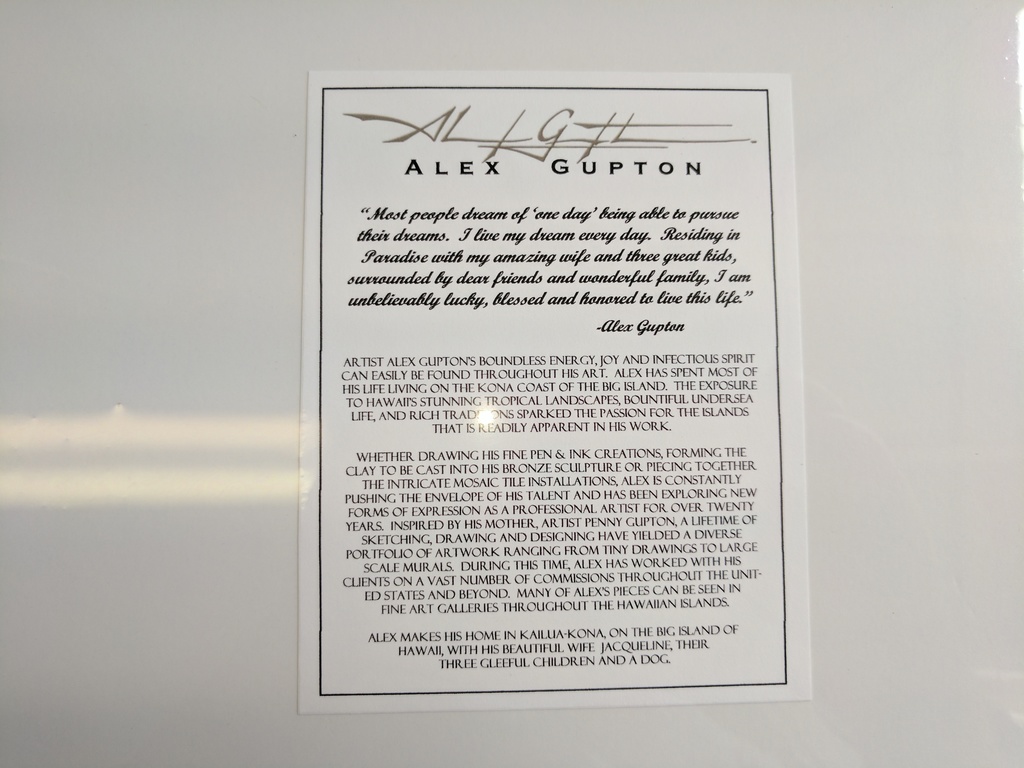 ALEX GUPTON
"Most people dream of 'one day' being able to pursue
their dreams. I live my dream every day. Residing in
Paradise with my amazing wife and three great kids,
surrounded by dear friends and wonderful family, I am
unbelievably lucky, blessed and honored to live this life."
-Alex Gupton
ARTIST ALEX GUPTON'S BOUNDLESS ENERGY, JOY AND INFECTIOUS SPIRIT
CAN EASILY BE FOUND THROUGHOUT HIS ART. ALEX HAS SPENT MOST OF
HIS LIFE LIVING ON THE KONA COAST OF THE BIG ISLAND. THE EXPOSURE
TO HAWAII'S STUNNING TROPICAL LANDSCAPES, BOUNTIFUL UNDERSEA
LIFE, AND RICH TRADITIONS SPARKED THE PASSION FOR THE ISLANDS
THAT IS READILY APPARENT IN HIS WORK.
WHETHER DRAWING HIS FINE PEN & INK CREATIONS, FORMING THE
CLAY TO BE CAST INTO HIS BRONZE SCULPTURE OR PIECING TOGETHER
THE INTRICATE MOSAIC TILE INSTALLATIONS, ALEX IS CONSTANTLY
PUSHING THE ENVELOPE OF HIS TALENT AND HAS BEEN EXPLORING NEW
FORMS OF EXPRESSION AS A PROFESSIONAL ARTIST FOR OVER TWENTY
YEARS. INSPIRED BY HIS MOTHER, ARTIST PENNY GUPTON, A LIFETIME OF
SKETCHING, DRAWING AND DESIGNING HAVE YIELDED A DIVERSE
PORTFOLIO OF ARTWORK RANGING FROM TINY DRAWINGS TO LARGE
SCALE MURALS. DURING THIS TIME, ALEX HAS WORKED WITH HIS
CLIENTS ON A VAST NUMBER OF COMMISSIONS THROUGHOUT THE UNIT-
ED STATES AND BEYOND. MANY OF ALEX'S PIECES CAN BE SEEN IN
FINE ART GALLERIES THROUGHOUT THE HAWAIIAN ISLANDS.
ALEX MAKES HIS HOME IN KAILUA-KONA, ON THE BIG ISLAND OF
HAWAII, WITH HIS BEAUTIFUL WIFE JACQUELINE, THEIR
THREE GLEEFUL CHILDREN AND A DOG.